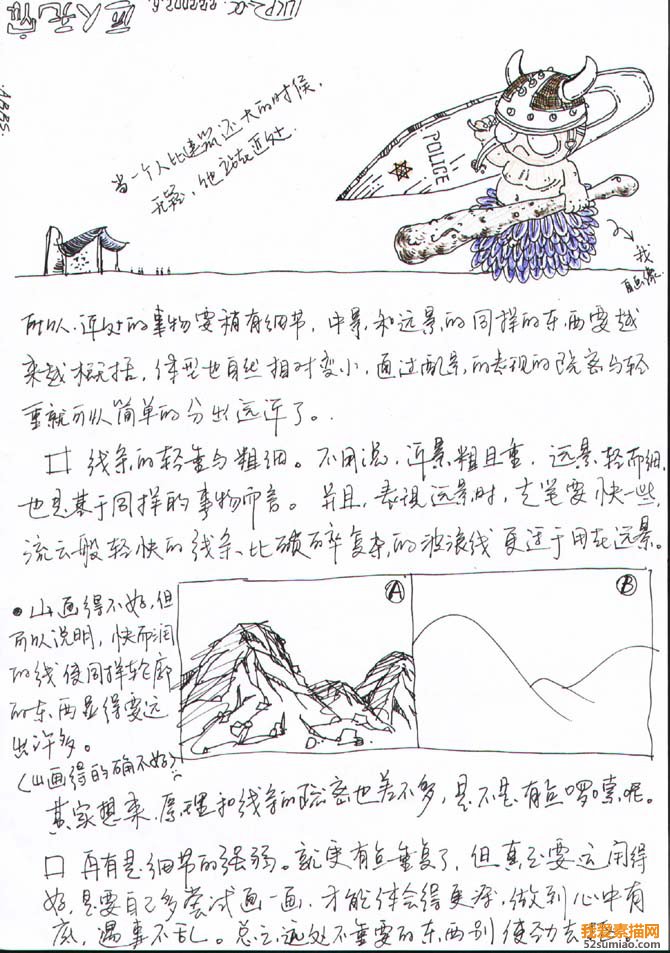 当一个人比建筑还大的时候，
无疑，他站在近处.
POLICE
我
自画像
所以.近处的事物要稍有细节，中景和远景的同样的东西要越
来越概括，体型也自然相对变小，通过配景的表现的疏密与轻
重就可以简单的分出远近了。
线条的轻重与粗细。不用说.近景粗且重，远景轻而细.
也是基于同样的事物而言。并且，表现远景时，走笔要快一些，
流云般轻快的线条.比琐碎复杂的波浪线更适于用在远景。
A
B
●山画得不好，但
可以说明，快而润
的线使同样轮廓
的东西显得要远
出许多。
(山画得的确不好)
其实想来，原理和线条的疏密也差不多，是不是有点啰嗦呢。
再有是细节的强弱。就更有点重复了，但真正要运用得
好，是要自己多尝试画一画，才能体会得更深，做到心中有
底，遇事不乱。总之，远处不重要的东西别使劲去
我爱素描网
52sumiao.com